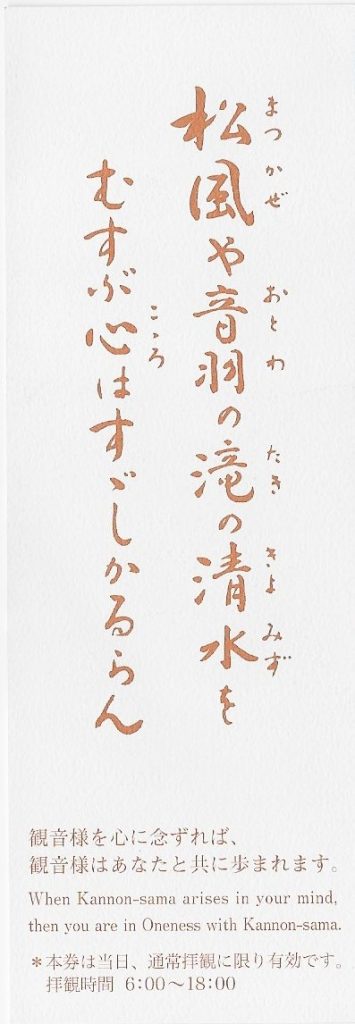 松風や音羽の滝の清水を
むすぶ心はすゞしかるらん
まつかぜ おとわ たき きよみず
こゝろ
観音様を心に念ずれば、
観音様はあなたと共に歩まれます。
When Kannon-sama arises in your mind,
then you are in Oneness with Kannon-sama.
*本券は当日、通常拝観に限り有効です。
拝観時間 6:00～18:00